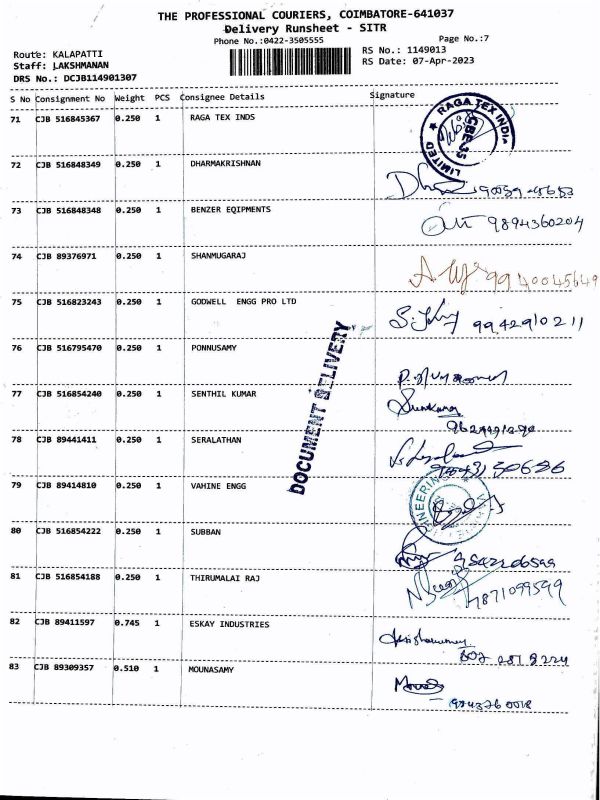 THE PROFESSIONAL COURIERS, COIMBATORE-641037
Delivery Runsheet - SITR
Phone No.:0422-3505555
Page No.:7
Route: KALAPATTI
RS No.: 1149013
Staff: LAKSHMANAN
RS Date: 07-Apr-2023
DRS No.: DCJB114901307
S No Consignment No Weight PCS Consignee Details Signature
71 CJB 516845367 0.250 1 RAGA TEX INDS
RAGA TEX INDIA LIMITED
72 CJB 516848349 0.250 1 DHARMAKRISHNAN
73 CJB 516848348 0.250 1 BENZER EQIPMENTS
9894360204
74 CJB 89376971 0.250 1 SHANMUGARAJ
9940045649
75 CJB 516823243 0.250 1 GODWELL ENGG PRO LTD
9942910211
DOCUMENT DELIVERY
76 CJB 516795470 0.250 1 PONNUSAMY
77 CJB 516854240 0.250 1 SENTHIL KUMAR
78 CJB 89441411 0.250 1 SERALATHAN
79 CJB 89414810 0.250 1 VAHINE ENGG
80 CJB 516854222 0.250 1 SUBBAN
81 CJB 516854188 0.250 1 THIRUMALAI RAJ
9871099599
82 CJB 89411597 0.745 1 ESKAY INDUSTRIES
83 CJB 89309357 0.510 1 MOUNASAMY